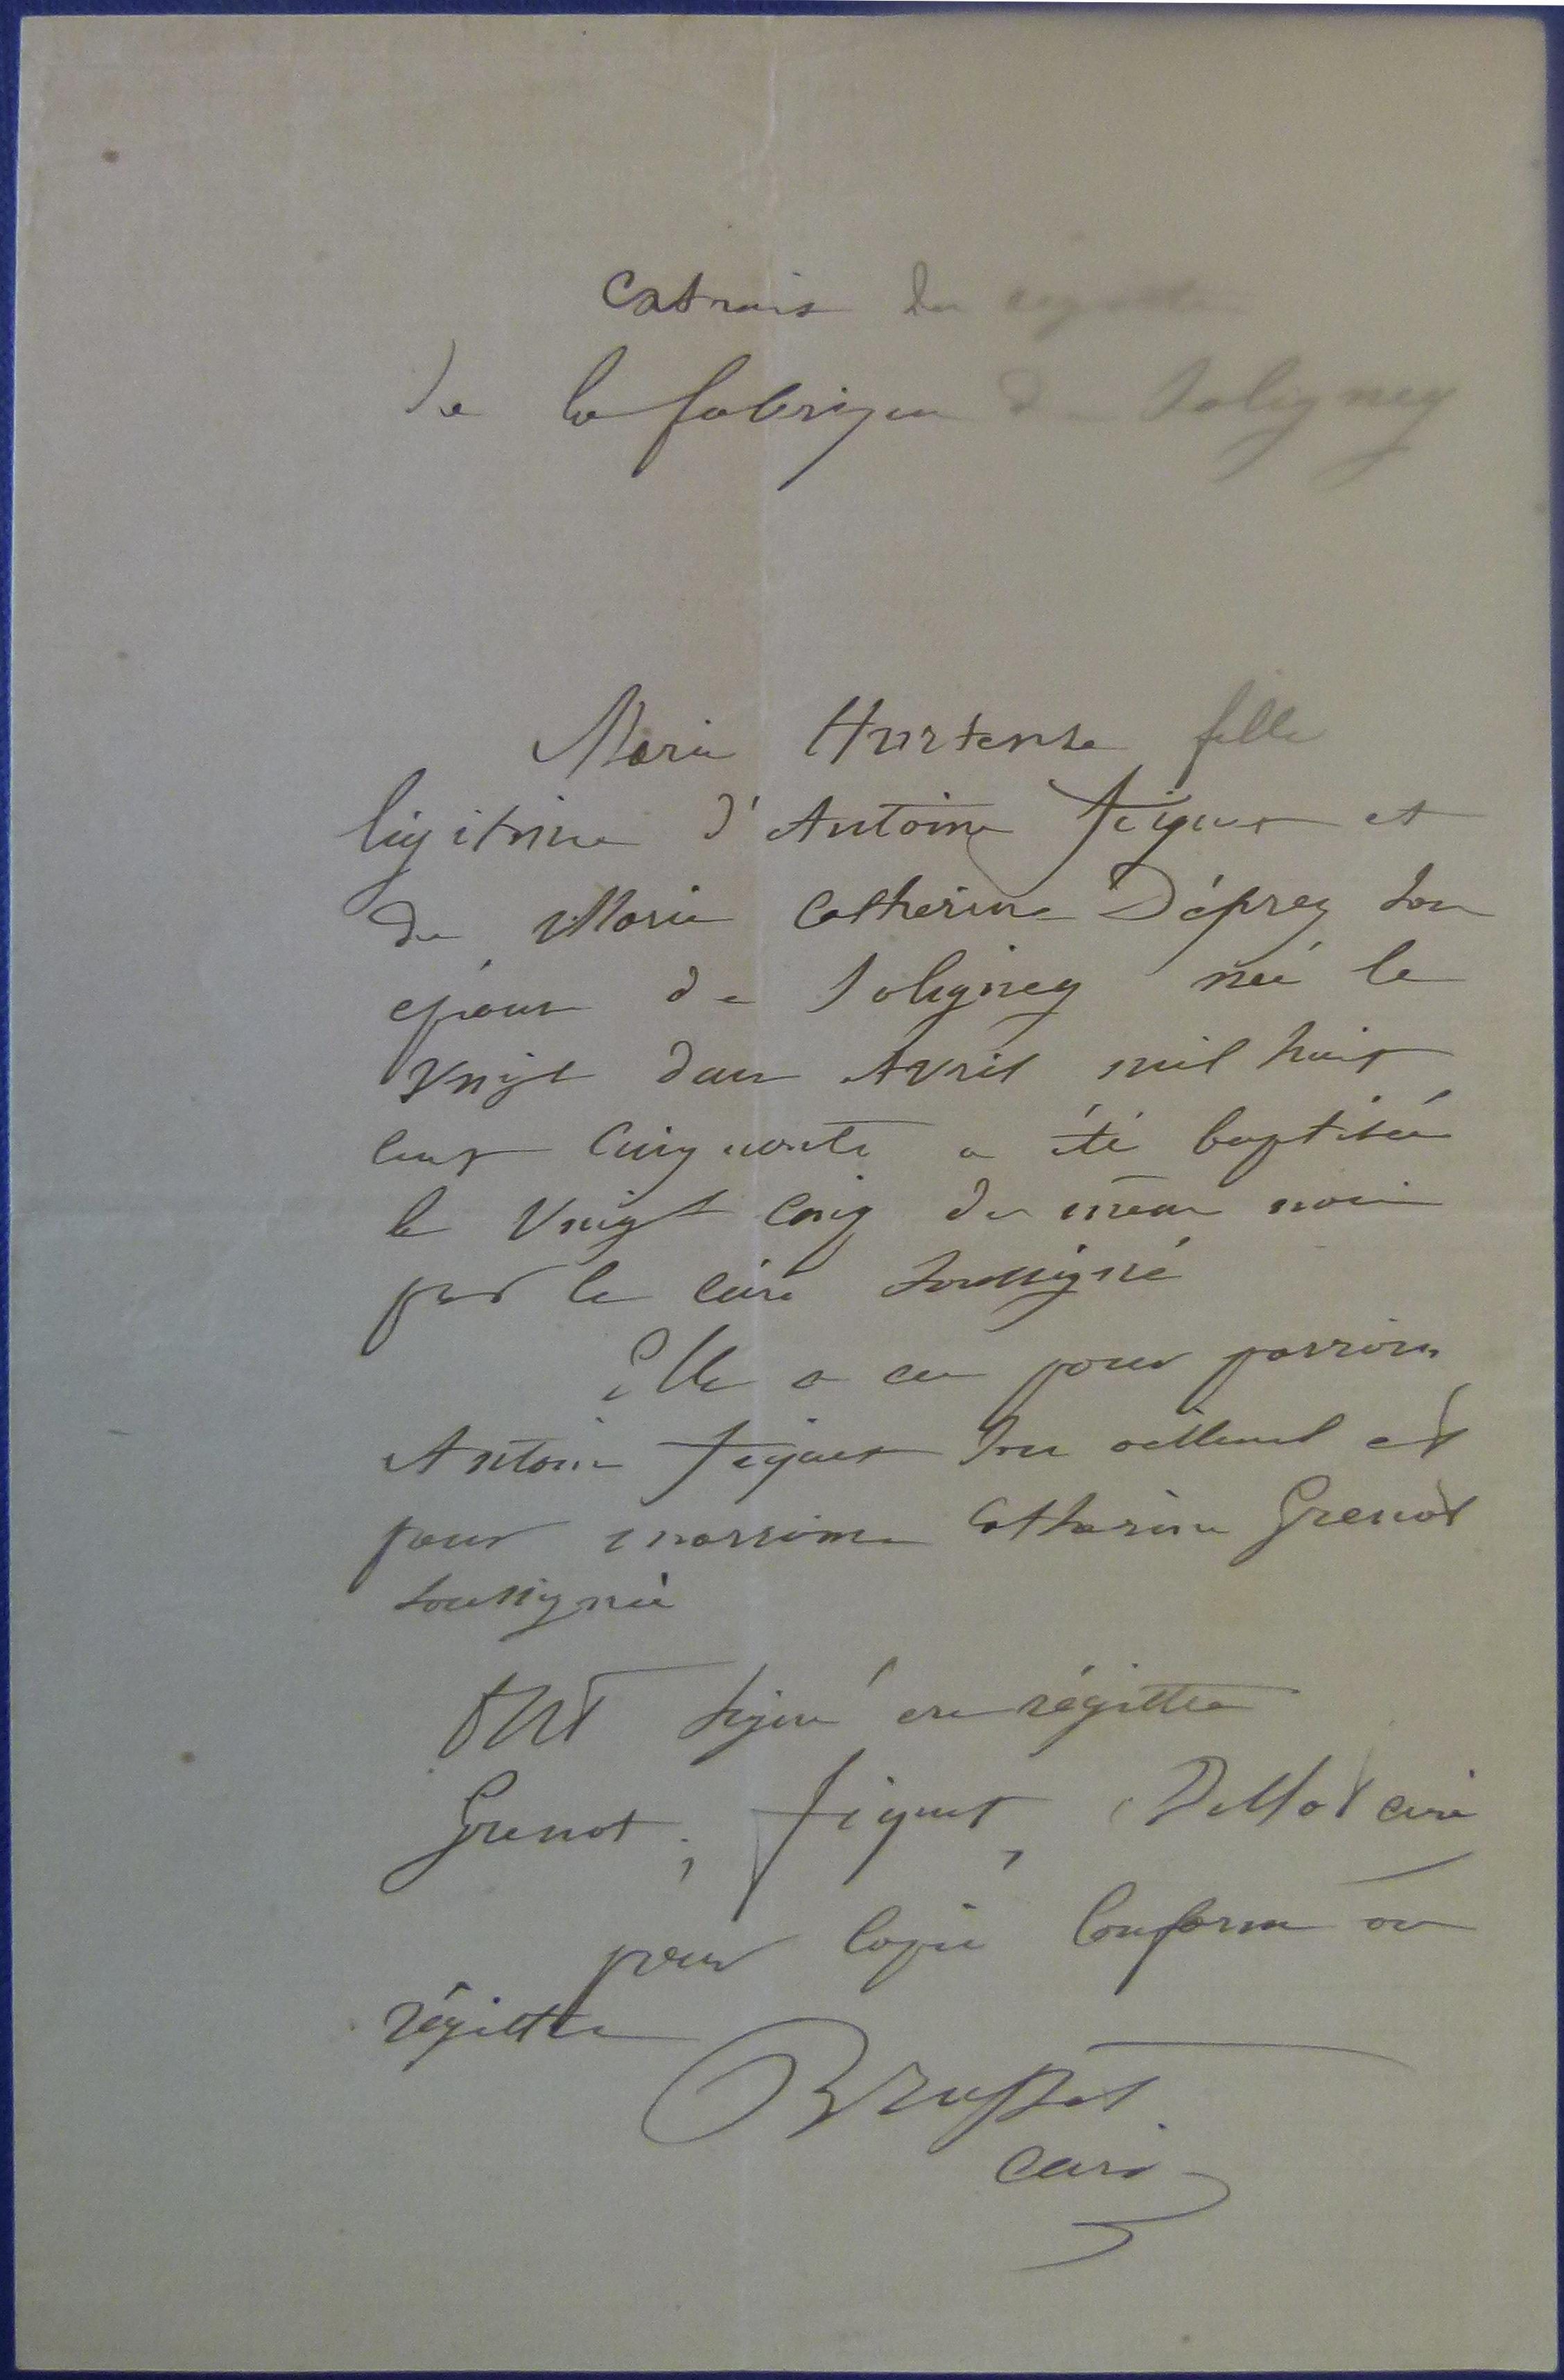 Extrait du registre
de la fabrique de Soligney
Marie Hortense fille
légitime d'Antoine Figuet et
de Marie Catherine Déprey son
épouse de Soligney née le
vingt deux Avril mil huit
cent cinquante a été baptisée
le vingt cinq du même mois
par le curé soussigné
Elle a eu pour parrain
Antoine Figuet son et
pour marraine Catherine Grenot
soussignée
Ont signé en régistre
Grenot, Figuet, curé
pour copie conforme au
régistre
Brusset
curé